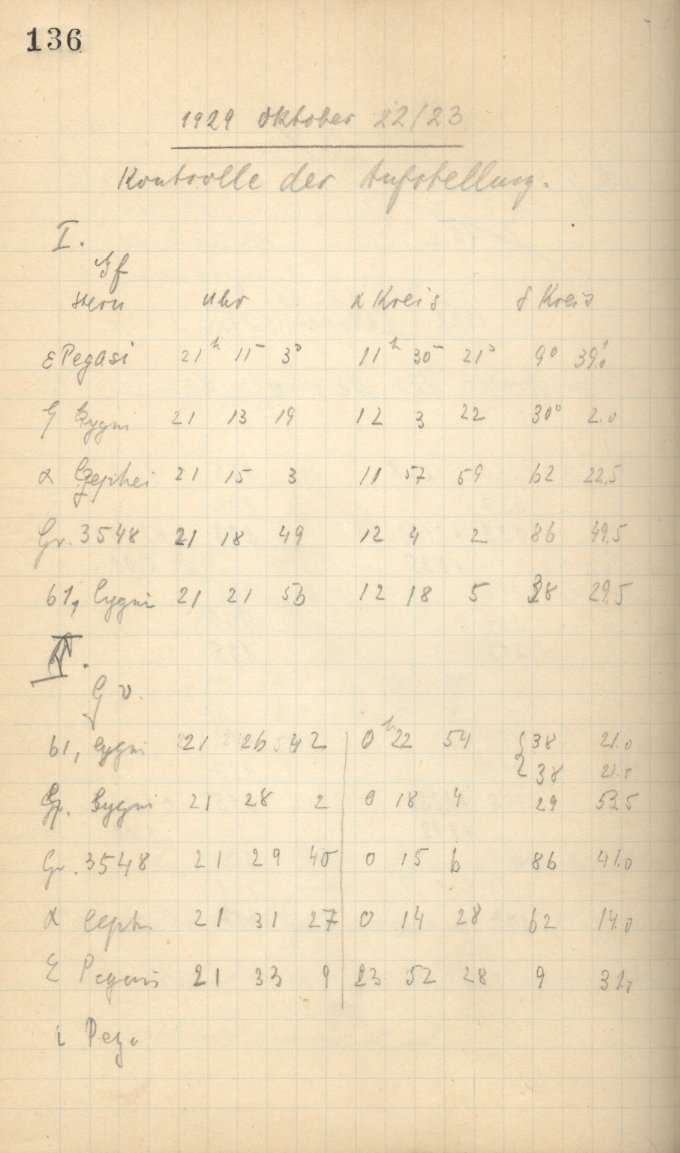 136
1929 Oktober 22/23
Kontrolle der Aufstellung.
I.
Gf
Stern Uhr α Kreis δ Kreis
ε Pegasi 21h 11m 3s 11h 30m 21s 9° 39'.0
ζ Cygni 21 13 19 12 3 22 30° 2.0
α Cephei 21 15 3 11 57 59 62 22.5
Gr. 3548 21 18 49 12 4 2 86 49.5
61, Cygni 21 21 53 12 18 5 38 29.5
II.
G v.
61, Cygni 21 26 42 0h 22 54 38 21.0
38 21.0
ζ. Cygni 21 28 2 0 18 4 29 53.5
Gr. 3548 21 29 40 0 15 6 86 41.0
α Ceph. 21 31 27 0 14 28 62 14.0
ε Pegasi 21 33 9 23 52 28 9 31.0
ι Peg.